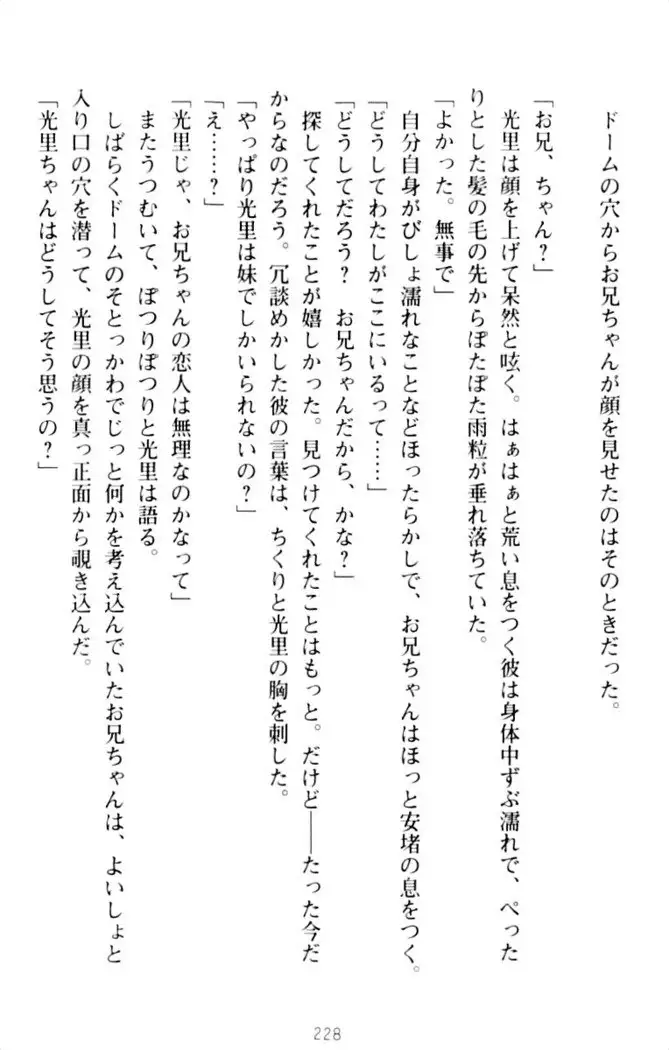 ドームの穴からお兄ちゃんが顔を見せたのはそのときだった。
「お兄、ちゃん？」
光里は顔を上げて呆然と呟く。はぁはぁと荒い息をつく彼は身体中ずぶ濡れで、ぺった
りとした髪の毛の先からぽたぽた雨粒が垂れ落ちていた。
「よかった。無事で」
自分自身がびしょ濡れなことなどほったらかしで、お兄ちゃんはほっと安堵の息をつく。
「どうしてわたしがここにいるって……」
「どうしてだろう？　お兄ちゃんだから、かな？」
探してくれたことが嬉しかった。見つけてくれたことはもっと。だけど――たった今だ
からなのだろう。冗談めかした彼の言葉は、ちくりと光里の胸を刺した。
「やっぱり光里は妹でしかいられないの？」
「え……？」
「光里じゃ、お兄ちゃんの恋人は無理なのかなって」
またうつむいて、ぽつりぽつりと光里は語る。
しばらくドームのそとっかわでじっと何かを考え込んでいたお兄ちゃんは、よいしょと
入り口の穴を潜って、光里の顔を真っ正面から覗き込んだ。
「光里ちゃんはどうしてそう思うの？」
228